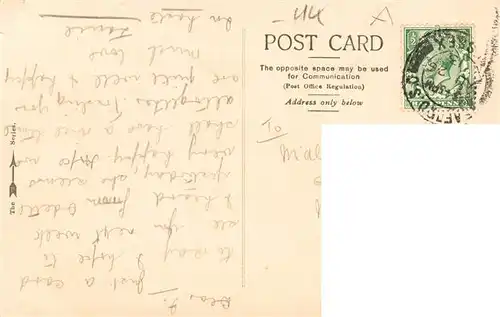 POST CARD
The opposite space may be used
for Communication
(Post Office Regulation)
Address only below
To
The Series.
Dear
Just a card
to say I hope to
see you next week
I heard from Odette
yesterday, she seems
very happy. Hope we
shall have a nice time
altogether. Trusting you
are quite well & happy
Much love
Fannie
In haste